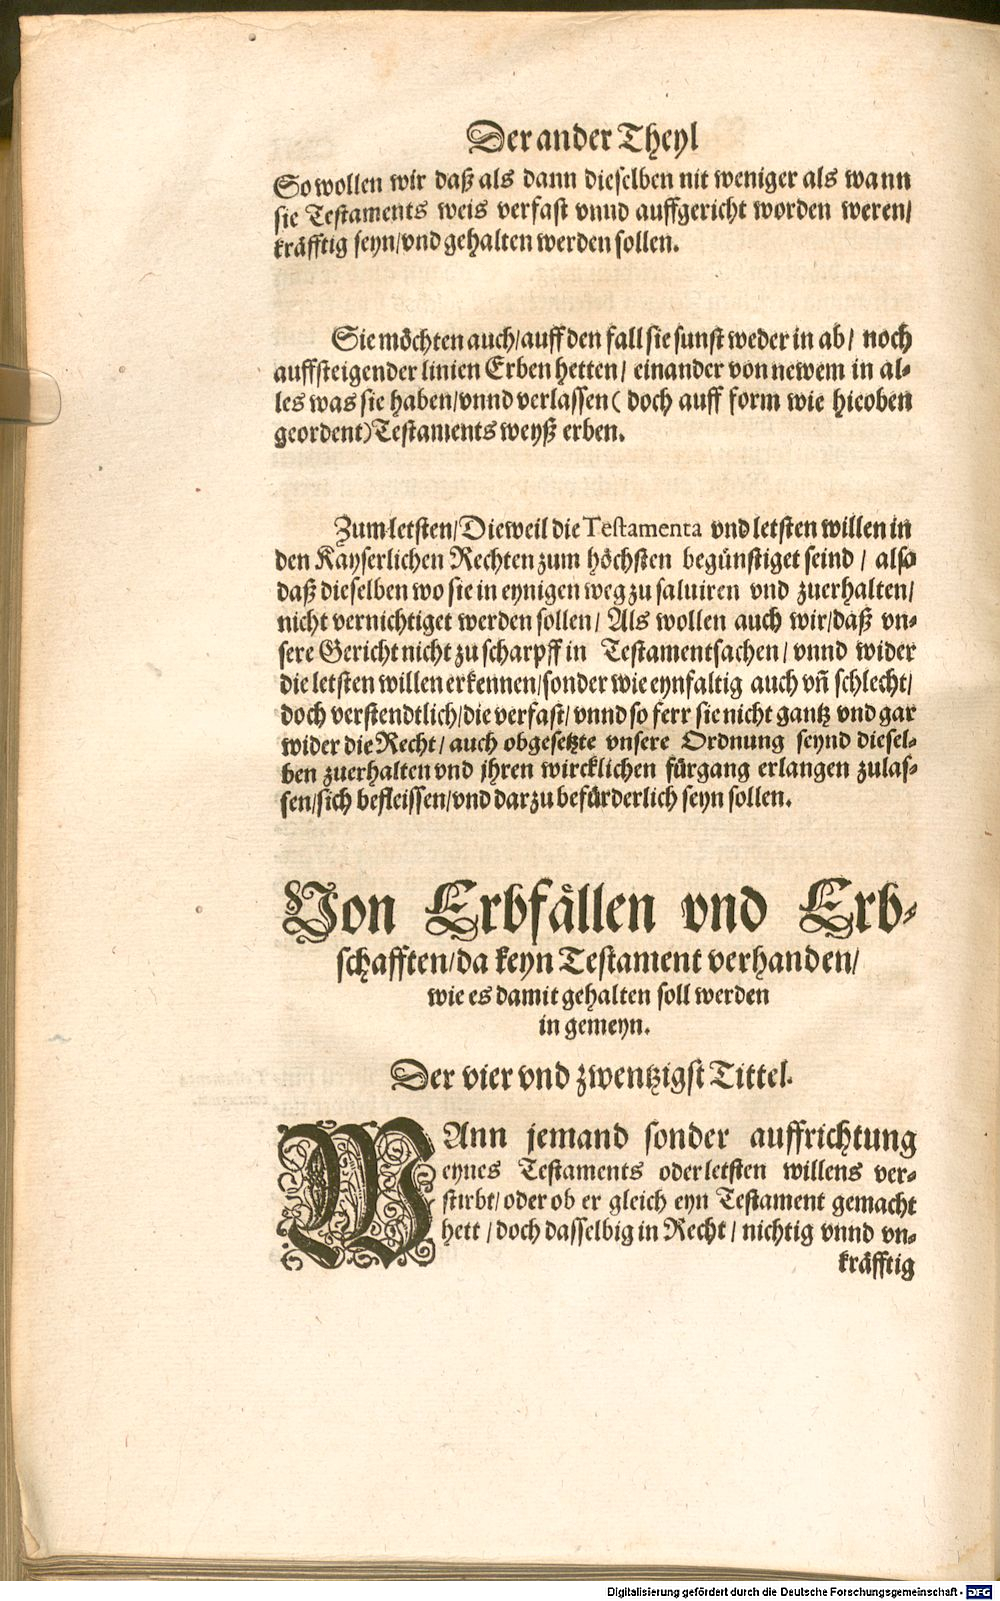 Der ander Theyl
So wollen wir daß als dann dieselben nit weniger als wann
sie Testaments weis verfast vnnd auffgericht worden weren/
kräfftig seyn/vnd gehalten werden sollen.
Sie möchten auch/auff den fall sie sunst weder in ab/ noch
auffsteigender linien Erben hetten/ einander von newem in al-
les was sie haben/vnnd verlassen( doch auff form wie hieoben
geordent)Testaments weyß erben.
Zum letsten/Dieweil die Testamenta vnd letsten willen in
den Kayserlichen Rechten zum höchsten begünstiget seind / also
daß dieselben wo sie in eynigen weg zu saluiren vnd zuerhalten/
nicht vernichtiget werden sollen/ Als wollen auch wir/daß vn-
sere Gericht nicht zu scharpff in Testamentsachen/ vnnd wider
die letsten willen erkennen/sonder wie eynfaltig auch vñ schlecht/
doch verstendtlich/die verfast/ vnnd so ferr sie nicht gantz vnd gar
wider die Recht/ auch obgesetzte vnsere Ordnung seynd diesel-
ben zuerhalten vnd jhren wircklichen fürgang erlangen zulas-
sen/sich befleissen/vnd darzu beförderlich seyn sollen.
Von Erbfällen vnd Erb-
schafften/da keyn Testament verhanden/
wie es damit gehalten soll werden
in gemeyn.
Der vier vnd zwentzigst Tittel.
WAnn jemand sonder auffrichtung
eynes Testaments oder letsten willens ver-
stirbt/ oder ob er gleich eyn Testament gemacht
hett / doch dasselbig in Recht / nichtig vnnd vn-
kräfftig
Digitalisierung gefördert durch die Deutsche Forschungsgemeinschaft - DFG